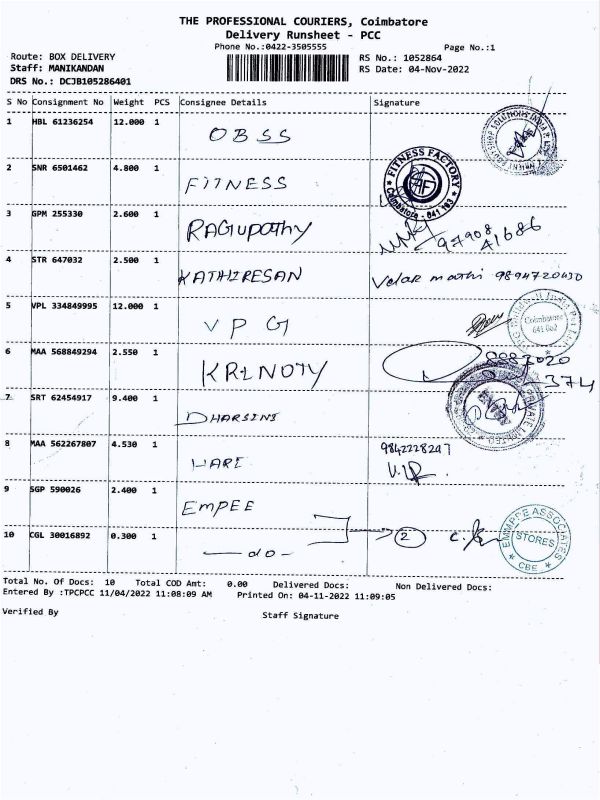 THE PROFESSIONAL COURIERS, Coimbatore
Delivery Runsheet - PCC
Phone No.:0422-3505555
Page No.:1
Route: BOX DELIVERY
RS No.: 1052864
Staff: MANIKANDAN
RS Date: 04-Nov-2022
DRS No.: DCJB105286401
S No Consignment No Weight PCS Consignee Details Signature
1 HBL 61236254 12.000 1 OBSS
2 SNR 6501462 4.800 1 FITNESS
FITNESS FACTORY
Coimbatore - 641
3 GPM 255330 2.600 1 RAGUPATHY
97908
41686
4 STR 647032 2.500 1 KATHIRESAN Velar mathi 9894720430
5 VPL 334849995 12.000 1 VPG
Coimbatore
641 002
6 MAA 568849294 2.550 1
374
7 SRT 62454917 9.400 1 DHARSINI
PRIVATE LIMITED
8 MAA 562267807 4.530 1 HARI
9842228297
9 SGP 590026 2.400 1 EMPEE
10 CGL 30016892 0.300 1 -do- 2
EMMPEE ASSOCIATES
STORES
CBE
Total No. Of Docs: 10 Total COD Amt: 0.00 Delivered Docs: Non Delivered Docs:
Entered By :TPCPCC 11/04/2022 11:08:09 AM Printed On: 04-11-2022 11:09:05
Verified By Staff Signature